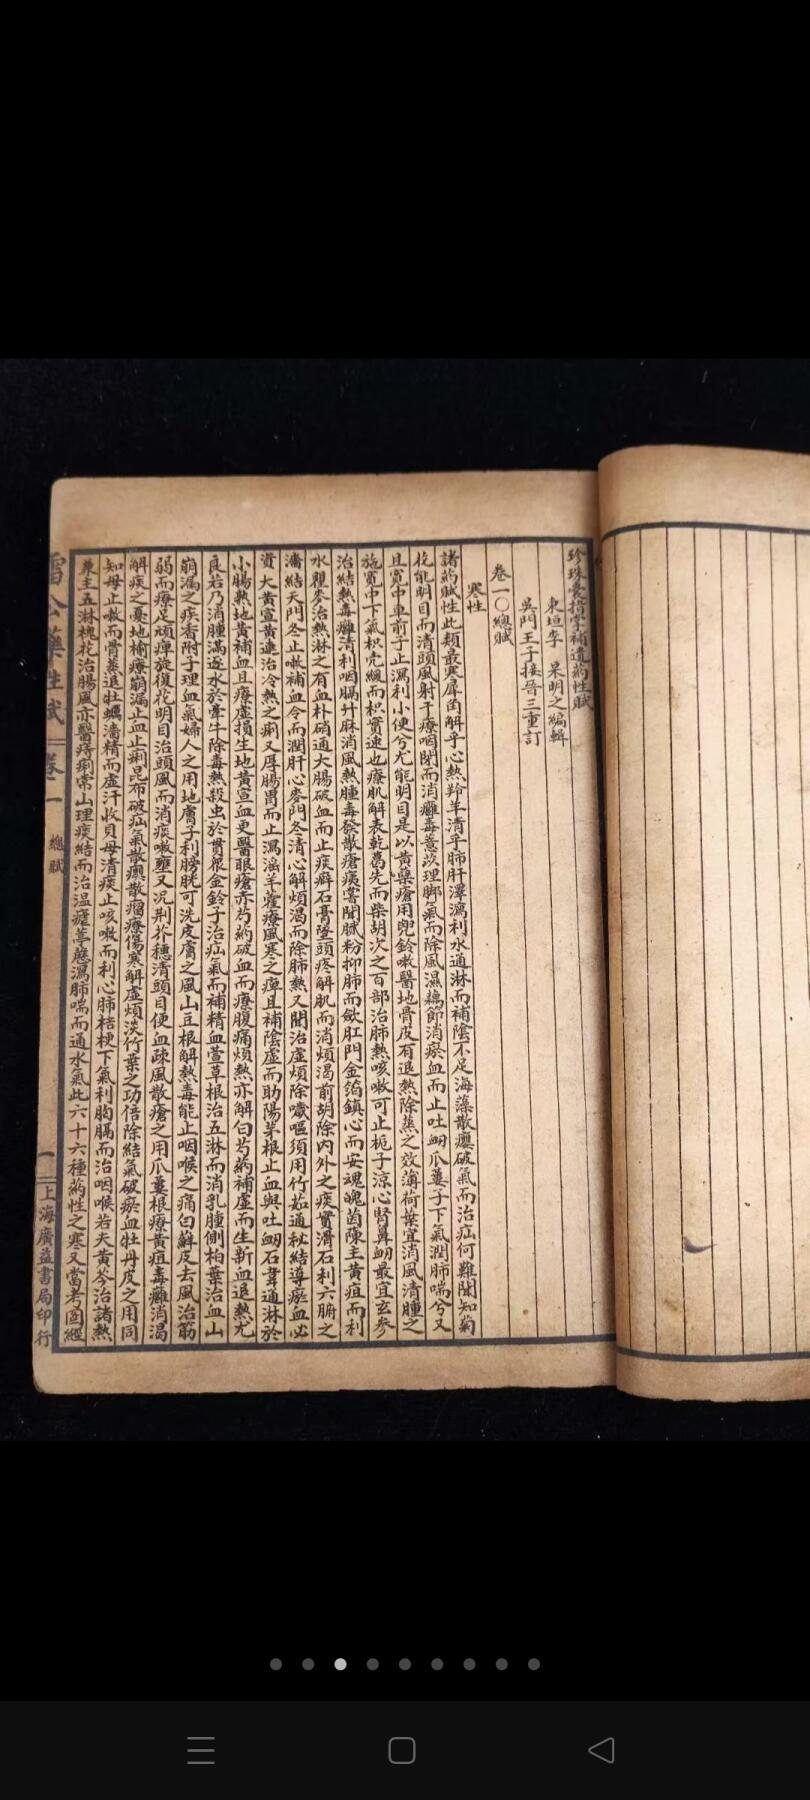 珍珠囊指掌補遺藥性賦
東垣李 杲明之編輯
吳門王子接晉三重訂
卷一〇總賦
寒性
諸藥賦性此類最寒犀角解乎心熱羚羊清乎肺肝澤瀉利水通淋而補陰不足海藻散癭破氣而治疝何難聞知菊
花能明目而清頭風射干療咽閉而消癰毒薏苡理脚氣而除風濕藕節消瘀血而止吐衄瓜蔞子下氣潤肺喘兮又
且寬中車前子止瀉利小便兮尤能明目是以黃蘗瘡用兜鈴嗽醫地骨皮有退熱除蒸之效薄荷葉宜消風清腫之
施寬中下氣枳壳緩而枳實速也療肌解表乾葛先而柴胡次之百部治肺熱咳嗽可止梔子涼心腎鼻衄最宜玄參
治結熱毒癰清利咽膈升麻消風熱腫毒發散瘡痍嘗聞膩粉抑肺而斂肛門金箔鎮心而安魂魄茵陳主黃疸而利
水瞿麥治熱淋之有血朴硝通大腸破血而止痰癖石膏墜頭疼解肌而消煩渴前胡除內外之痰實滑石利六腑之
濇結天門冬止嗽補血令而潤肝心麥門冬清心解煩渴而除肺熱又聞治虛煩除噦嘔須用竹茹通秘結導瘀血必
資大黃宣黃連治冷熱之痢又厚腸胃而止瀉淫羊藿療風寒之痺且補陰虛而助陽茅根止血與吐衄石韋通淋於
小腸熟地黃補血且療虛損生地黃宣血更醫眼瘡赤芍藥破血而療腹痛煩熱亦解白芍藥補虛而生新血退熱尤
良若乃消腫滿逐水於牽牛除毒熱殺虫於貫衆金鈴子治疝氣而補精血萱草根治五淋而消乳腫側柏葉治血山
崩漏之疾香附子理血氣婦人之用地膚子利膀胱可洗皮膚之風山豆根解熱毒能止咽喉之痛白蘚皮去風治筋
弱而療足頑痺旋復花明目治頭風而消痰嗽壅又況荊芥穗清頭目便血疎風散瘡之用瓜蔞根療黃疸毒癰消渴
解痰之憂地榆療崩漏止血止痢昆布破疝氣散癭散瘤療傷寒解虛煩淡竹葉之功倍除結氣破瘀血牡丹皮之用同
知母止嗽而骨蒸退牡蠣濇精而虛汗收貝母清痰止咳嗽而利心肺桔梗下氣利胸膈而治咽喉若夫黃芩治諸熱
兼主五淋槐花治腸風亦醫痔痢常山理痰結而治溫瘧葶藶瀉肺喘而通水氣此六十六種藥性之寒又當考圖經
雷公藥性賦 卷一 總賦 一 上海廣益書局印行